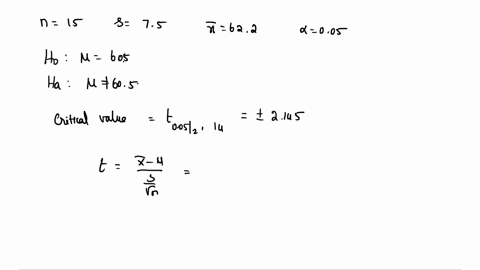 n = 15 s = 7.5 x̄ = 62.2 α = 0.05
H₀ : μ = 605
Ha : μ ≠ 60.5
Critical value = t 0.05/2, 14 = ± 2.145
t = x̄ - μ / s/√n =